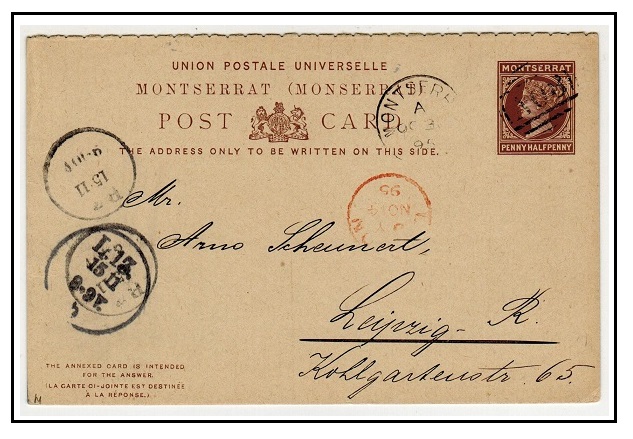 UNION POSTALE UNIVERSELLE
MONTSERRAT (MONSERRAT)
POST CARD
THE ADDRESS ONLY TO BE WRITTEN ON THIS SIDE.
MONTSERRAT
PENNY HALFPENNY
A
OC 3
95
15·11
NO 14
95
L.13
15 11
Mr.
Arno Scheunert,
Leipzig-R.
Kohlgartenstr. 65.
THE ANNEXED CARD IS INTENDED
FOR THE ANSWER.
(LA CARTE CI-JOINTE EST DESTINÉE
À LA RÉPONSE.)